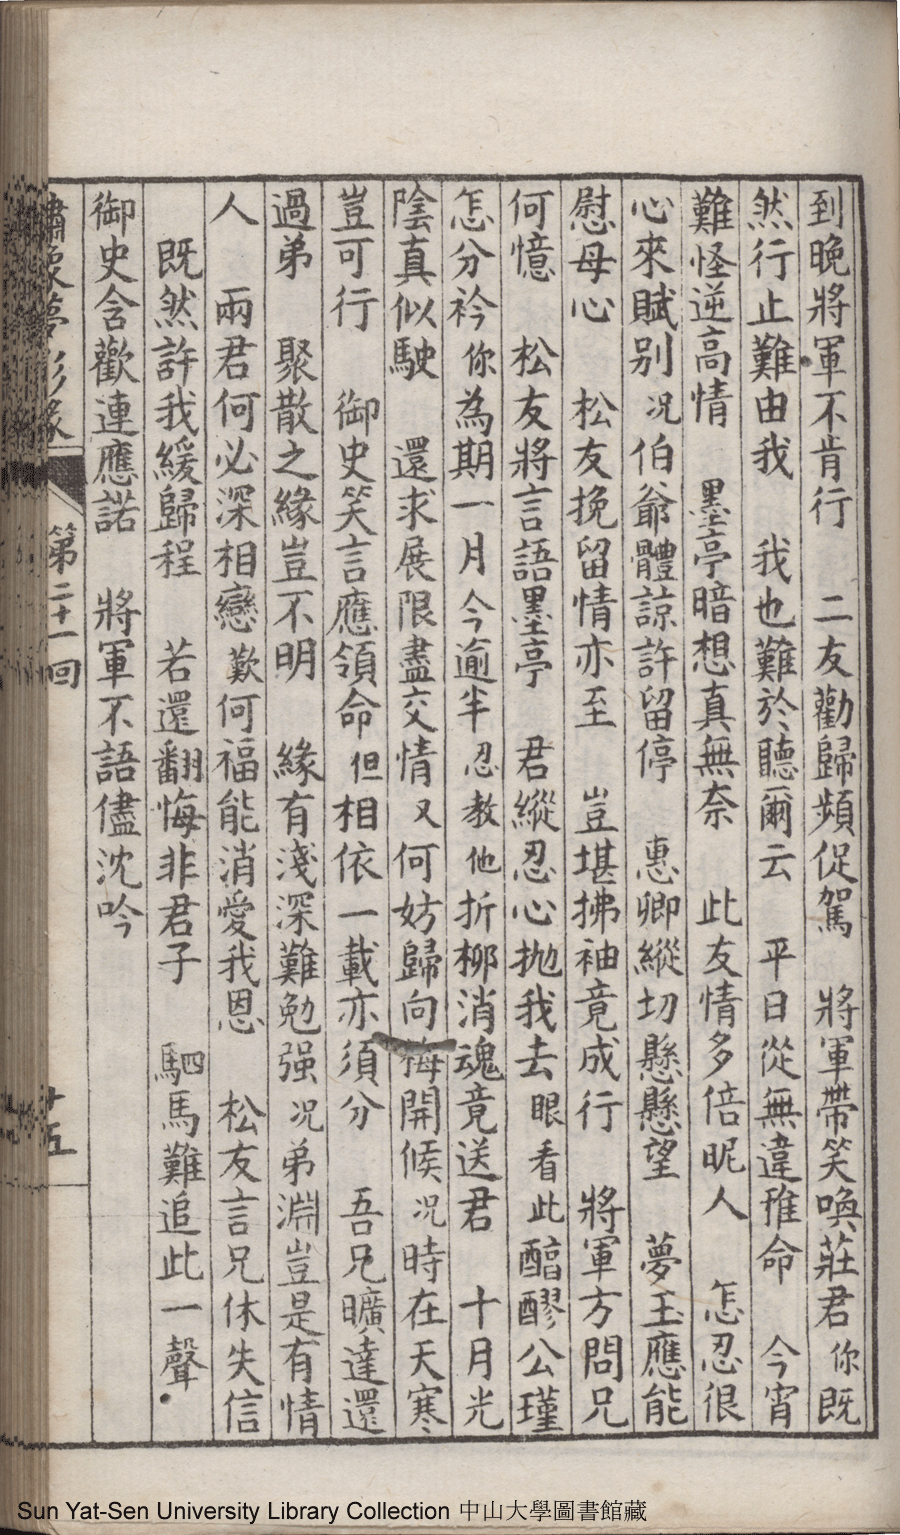 到晚將軍不肯行　二友勸歸頻促駕　將軍帶笑喚莊君你既
然行止難由我　我也難於聽爾云　平日從無違雅命　今宵
難怪逆高情　墨亭暗想真無奈　此友情多倍昵人　怎忍很
心來賦别况伯爺體諒許留停　惠卿縱切懸懸望　夢玉應能
慰母心　松友挽留情亦至　豈堪拂袖竟成行　將軍方問兄
何憶　松友將言語墨亭　君縱忍心拋我去眼看此醕醪公瑾
怎分衿你為期一月今逾半忍教他折柳消魂竟送君　十月光
陰真似駛　還求展限盡交情又何妨歸向梅開候况時在天寒
豈可行　御史笑言應領命但相依一載亦須分　吾兄曠達還
過弟　聚散之緣豈不明　緣有淺深難勉强况弟淵豈是有情
人　兩君何必深相戀歎何福能消愛我恩　松友言兄休失信
既然許我緩歸程　若還翻悔非君子　駟馬難追此一聲
御史含歡連應諾　將軍不語儘沈吟
繡像夢影緣
第二十一回
十五
Sun Yat-Sen University Library Collection 中山大學圖書館藏